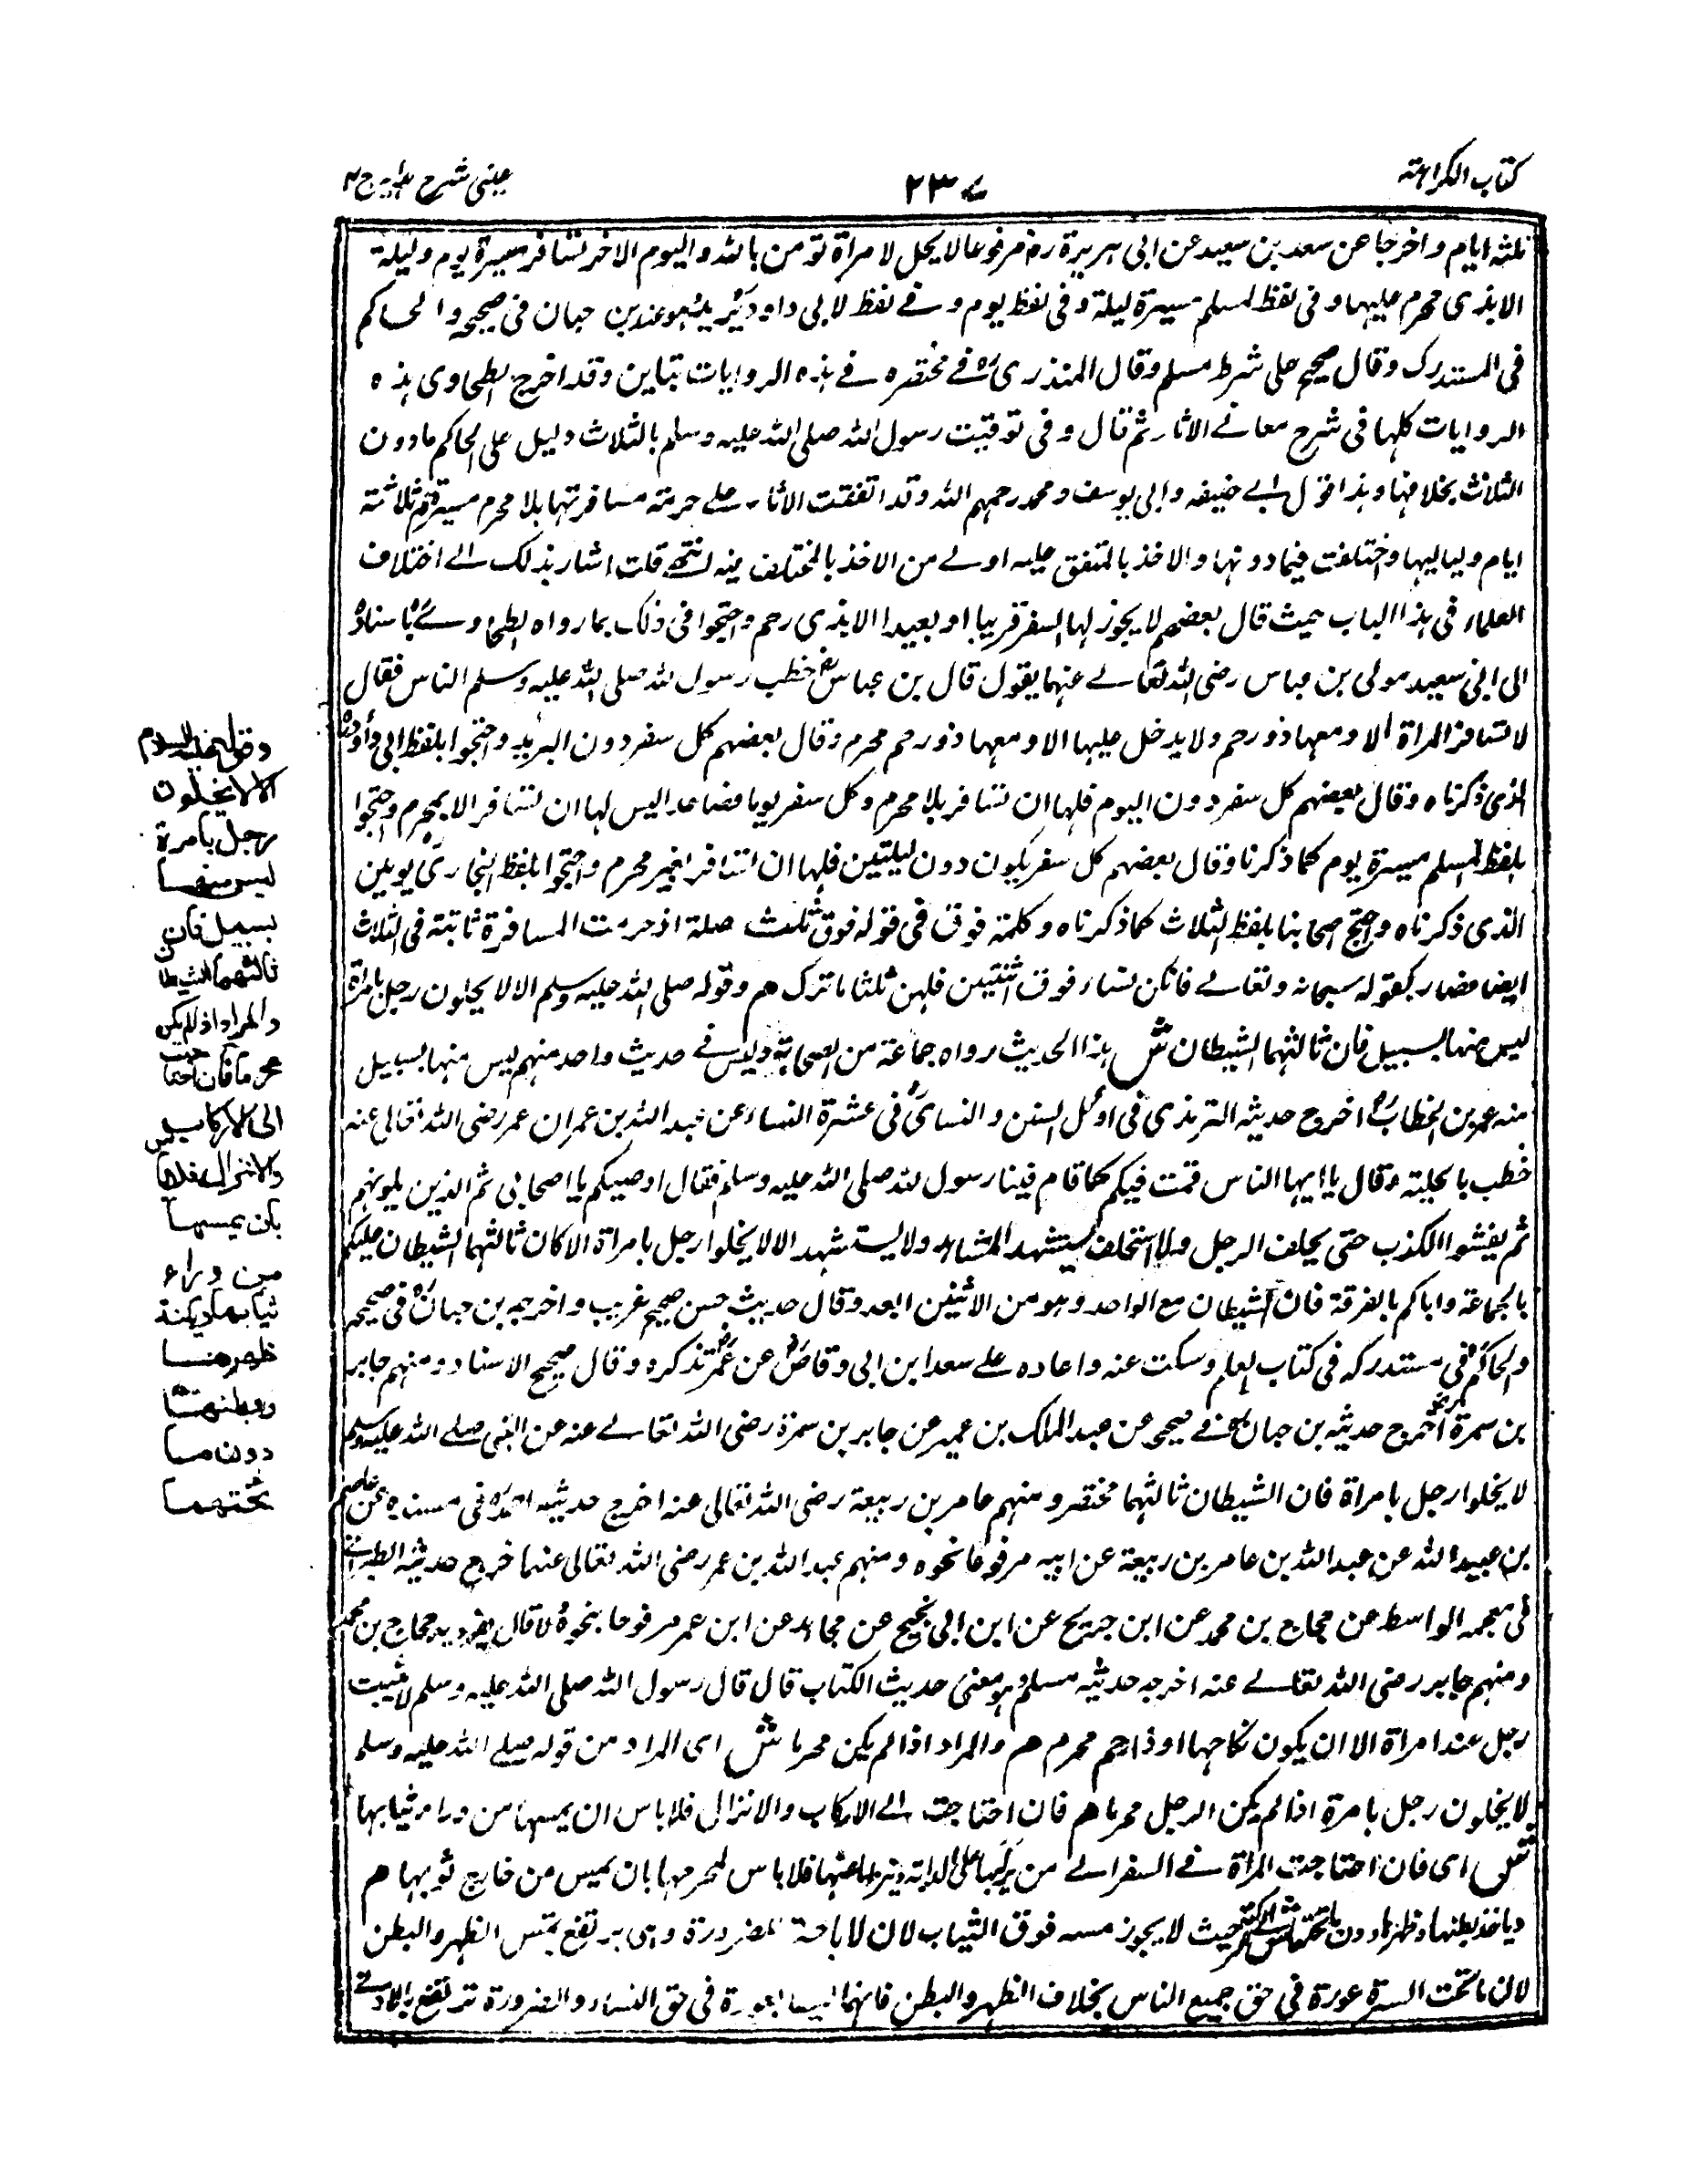 كتاب الكراهة
٢٣٧
عينى شرح هدايه ج ٤
ثلثة ايام واخرجا عن سعد بن سعيد عن ابى هريرة رض مرفوعا لا يحل لامراة تومن بالله واليوم الاخر تسافر مسيرة يوم وليلة
الا بذى محرم عليها وفى لفظ لمسلم مسيرة ليلة وفى لفظ يوم وفى لفظ لابى داود بريد وهو عند بن حبان فى صحيحه والحاكم
فى المستدرك وقال صحيح على شرط مسلم وقال المنذرى فى مختصره فى هذه الروايات تباين وقد اخرج الطحاوى هذه
الروايات كلها فى شرح معانى الاثار ثم قال وفى توقيت رسول الله صلى الله عليه وسلم بالثلاث دليل على الحاكم مادون
الثلاث بخلافها وهذا قول ابى حنيفه وابى يوسف ومحمد رحمهم الله وقد اتفقت الاثار على حرمة مسافرتها بلا محرم مسيرة ثلاثة
ايام ولياليها واختلفت فيما دونها والاخذ بالمتفق عليه اولى من الاخذ بالمختلف فيه انتهى قلت اشار بذلك الى اختلاف
العلماء فى هذا الباب حيث قال بعضهم لا يجوز لها السفر قريبا او بعيدا الا بذى رحم واحتجوا فى ذلك بما رواه الطحاوى باسناده
الى ابى سعيد مولى بن عباس رضى الله تعالى عنهما يقول قال بن عباس خطب رسول الله صلى الله عليه وسلم الناس فقال
لا تسافر المراة الا ومعها ذو رحم ولا يدخل عليها الا ومعها ذو رحم محرم وقال بعضهم كل سفر دون البريد واحتجوا بلفظ ابى داود
الذى ذكرناه وقال بعضهم كل سفر دون اليوم فلها ان تسافر بلا محرم وكل سفر يوما فصاعدا ليس لها ان تسافر الا بمحرم واحتجوا
بلفظ لمسلم مسيرة يوم كما ذكرنا وقال بعضهم كل سفر يكون دون ليلتين فلها ان تسافر بغير محرم واحتجوا بلفظ البخارى يومين
الذى ذكرناه واحتج اصحابنا بلفظ الثلاث كما ذكرناه وكلمة فوق فى قوله فوق ثلث صلة اذ حرمت المسافرة ثابتة فى الثلاث
ايضا فصار كقوله سبحانه وتعالى فان كن نساء فوق اثنتين فلهن ثلثا ما ترك هم وقوله صلى الله عليه وسلم الا لا يخلون رجل بامراة
ليس منها بسبيل فان ثالثهما الشيطان ش هذا الحديث رواه جماعة من الصحابة وليس فى حديث واحد منهم ليس منها بسبيل
منه عمر بن الخطاب اخرج حديثه الترمذى فى اوئل السنن والنسائى فى عشرة النساء عن عبد الله بن عمر ان عمر رضى الله تعالى عنه
خطب بالجابية وقال يا ايها الناس قمت فيكم كما قام فينا رسول الله صلى الله عليه وسلم فقال اوصيكم يا اصحابى ثم الذين يلونهم
ثم يفشوا الكذب حتى يحلف الرجل ولا استحلف يستشهد المشاهد ولا يستشهد الا لا يخلوا رجل بامراة الا كان ثالثهما الشيطان عليكم
بالجماعة واياكم بالفرقة فان الشيطان مع الواحد وهو من الاثنين ابعد وقال حديث حسن صحيح غريب واخرجه بن حبان فى صحيحه
والحاكم فى مستدركه فى كتاب العلم وسكت عنه واعاده على سعد ابن ابى وقاص عن عمر تذكره وقال صحيح الاسناد ومنهم جابر
بن سمرة اخرج حديثه بن حبان فى صحيحه عن عبد الملك بن عمير عن جابر بن سمرة رضى الله تعالى عنه عن النبى صلى الله عليه وسلم
لا يخلوا رجل بامراة فان الشيطان ثالثهما مختصر ومنهم عامر بن ربيعة رضى الله تعالى عنه اخرج حديثه احمد فى مسنده عن عاصم
بن عبيد الله عن عبد الله بن عامر بن ربيعة عن ابيه مرفوعا نحوه ومنهم عبد الله بن عمر رضى الله تعالى عنهما خرج حديثه الطبرانى
فى معجمه الواسط عن حجاج بن محمد عن ابن جريج عن ابن ابى نجيح عن مجاهد عن ابن عمر مرفوعا بنحوه لا قال يفرد به حجاج بن محمد
ومنهم جابر رضى الله تعالى عنه اخرجه حديثه مسلم وهو معنى حديث الكتاب قال قال رسول الله صلى الله عليه وسلم لا يثبت
رجل عند امراة الا ان يكون نكاحها او ذا رحم محرم هم والمراد اذا لم يكن محرما ش اى المراد من قوله صلى الله عليه وسلم
لا يخلون رجل بامرة اذا لم يكن الرجل محرما هم فان احتاجت الى الاركاب والانزال فلا باس ان يمسها من وراء ثيابها
ش اى فان احتاجت المراة فى السفر الى من يركبها على الدابة وينزلها عنها فلا باس لمحرمها بان يمس من خارج ثوبها هم
وياخذ بطنها وظهرها دون ما تحتهما ش حيث لا يجوز مسه فوق الثياب لان لاباحة للضرورة وهى ترتفع بمس الظهر والبطن
لان ما تحت السرة عورة فى حق جميع الناس بخلاف الظهر والبطن فانهما ليسا بعورة فى حق النساء والضرورة ترتفع بالادنى
وقوله عليه السلام
الا لا يخلون
رجل بامرة
ليس منها
بسبيل فان
ثالثهما الشيطا
والمراد اذا لم يكن
محرما فان احتاجت
الى الاركاب
والانزال فلا باس
بان يمسها
من وراء
ثيابها وياخذ
ظهرها
وبطنها
دون ما
تحتهما